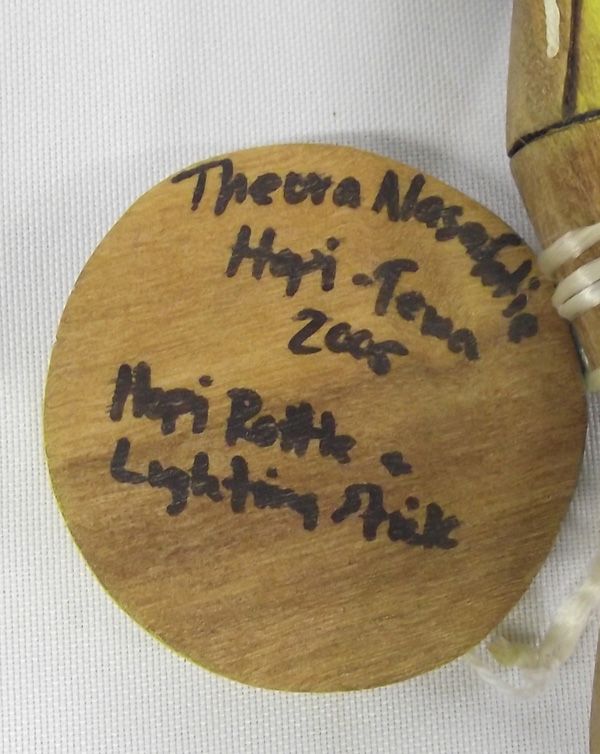 Theura Nasafotie
Hopi-Tewa
2005
Hopi Rattle &
Lighting Stick